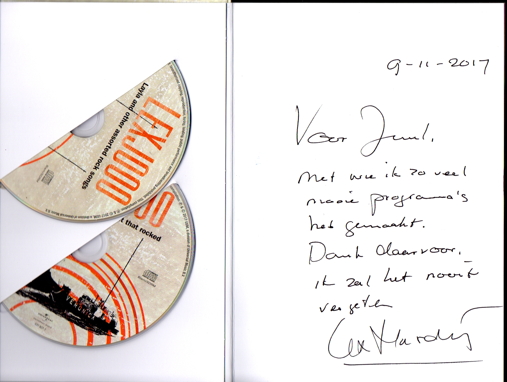 LEX.1000
Layla and other assorted rock songs
t that rocked
9-11-2017
Voor Juul.
Met wie ik zo veel
mooie programma's
heb gemaakt.
Dank daarvoor.
ik zal het nooit
vergeten
Lex Harding